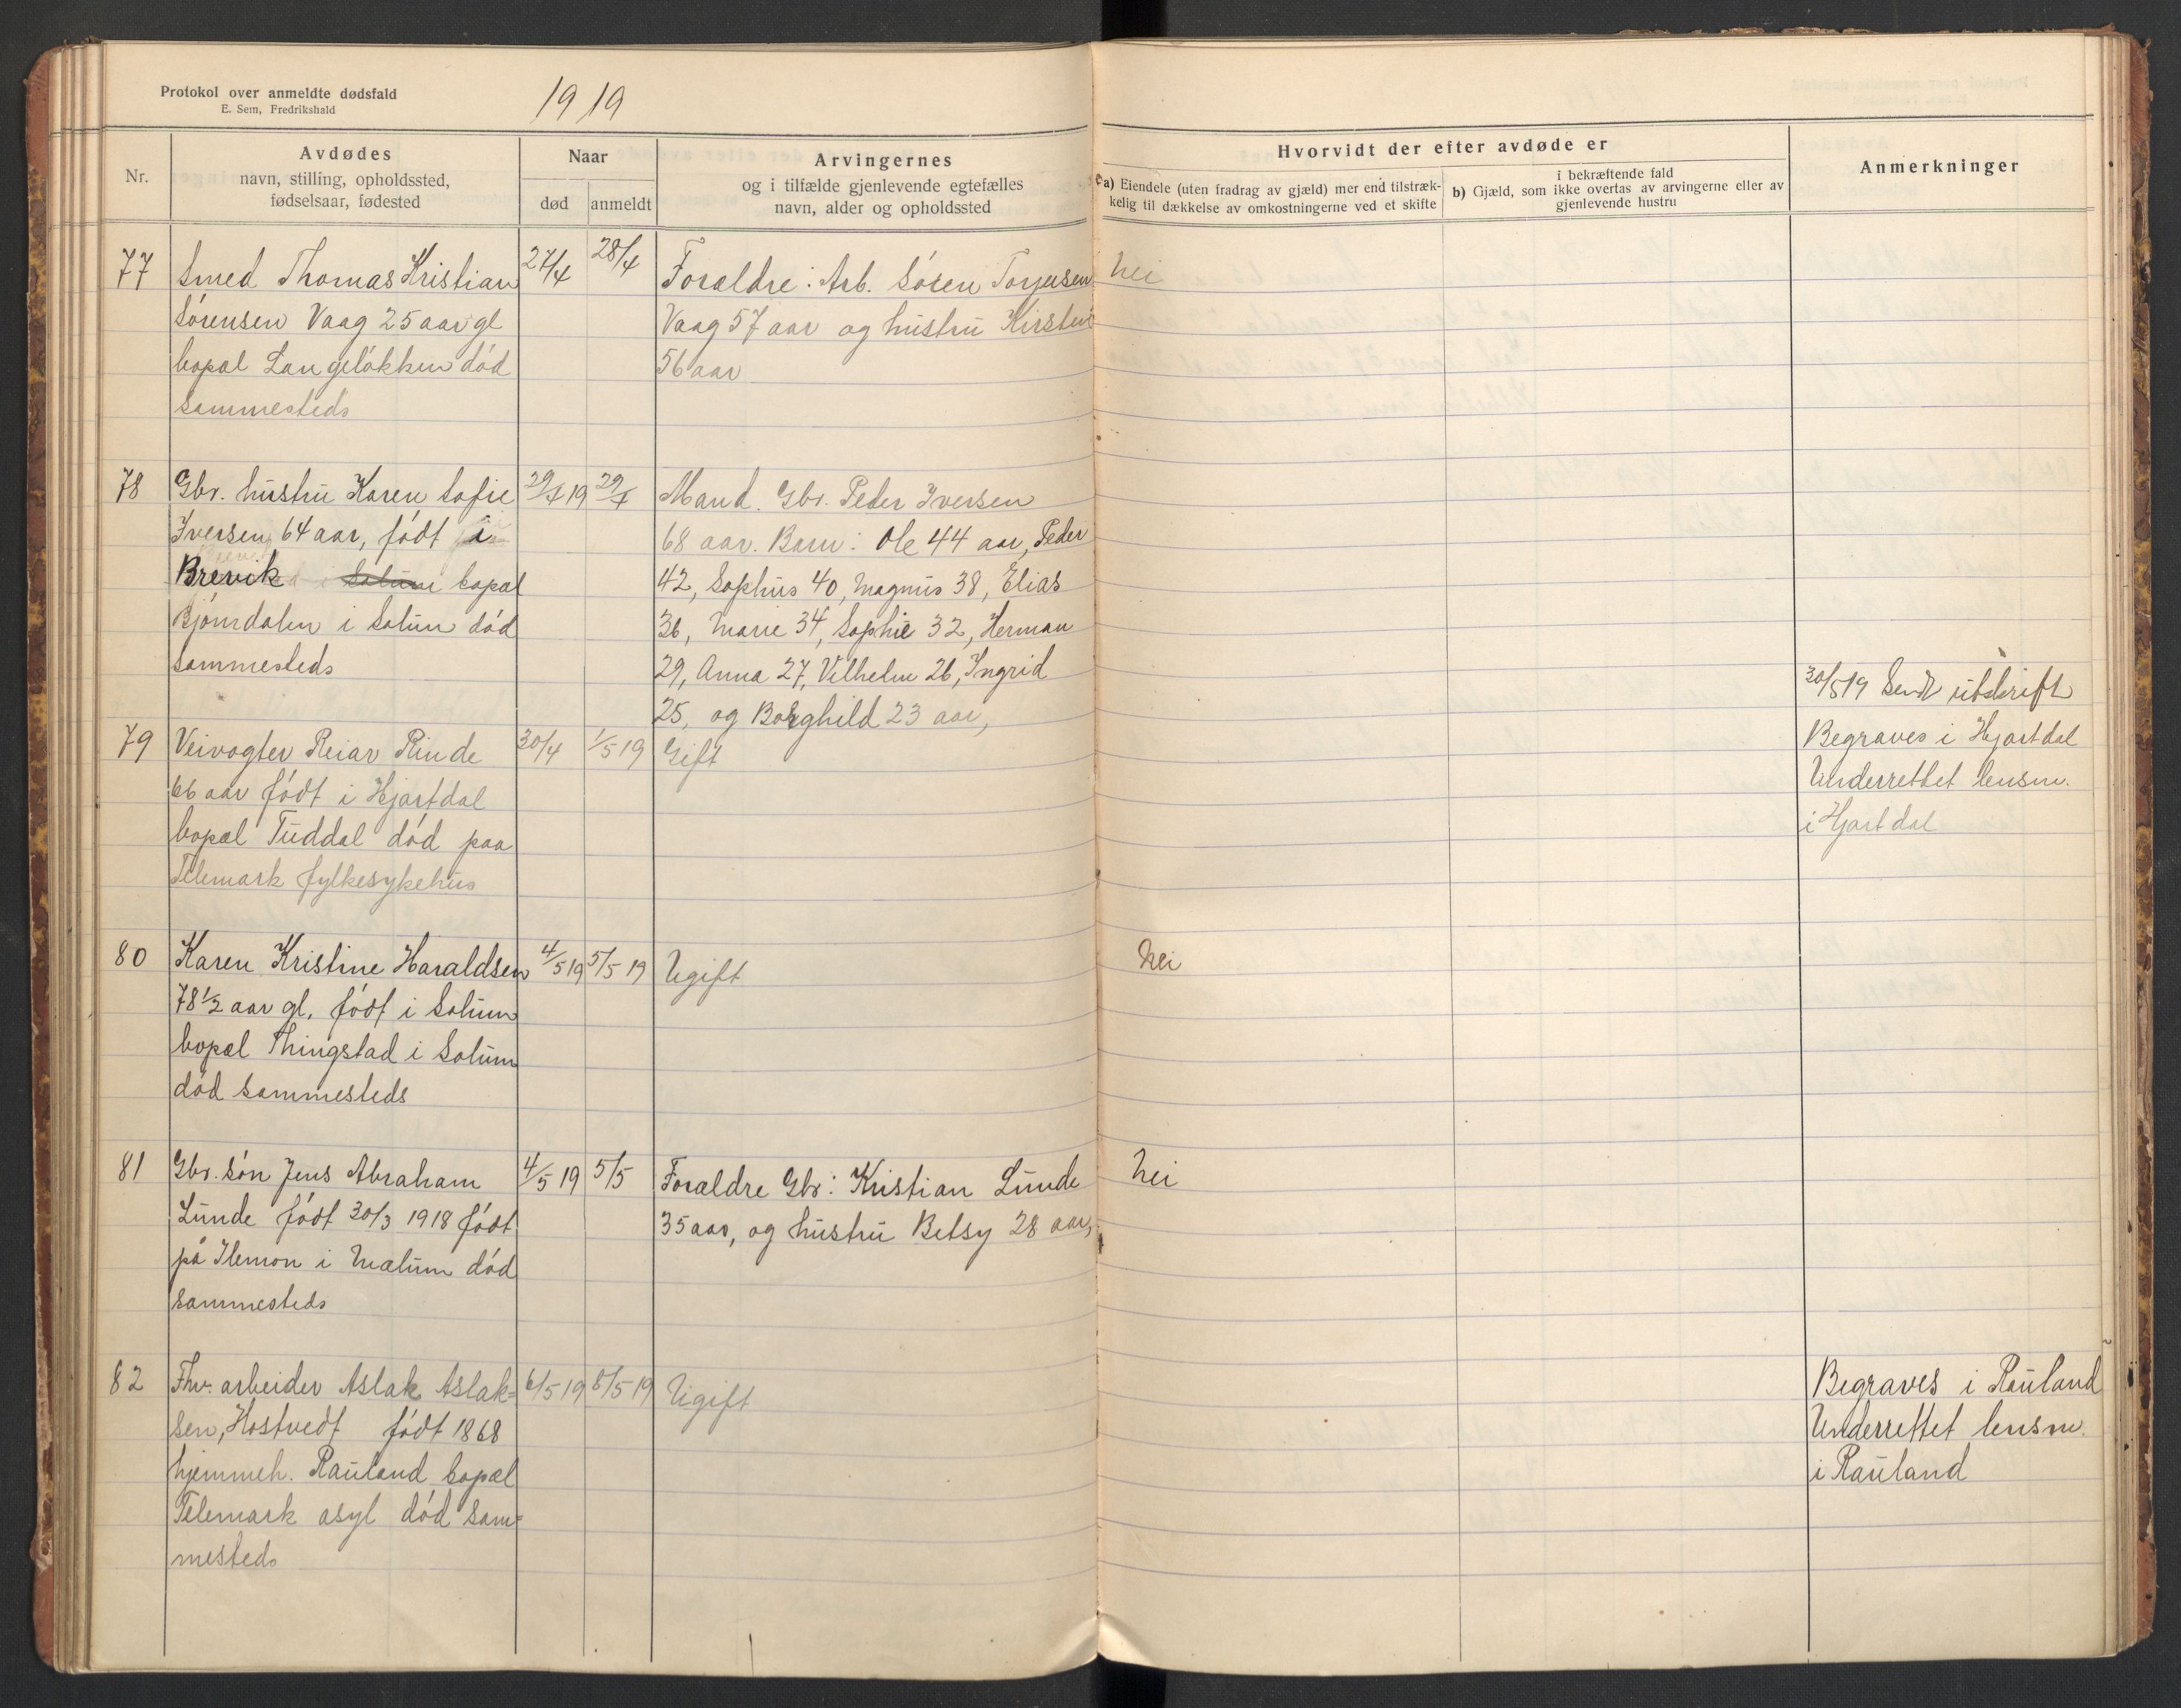 Protokol over anmeldte dødsfald
E. Sem, Fredrikshald
1919
Nr.
Avdødes
navn, stilling, opholdssted,
fødselsaar, fødested
Naar
død
anmeldt
Arvingernes
og i tilfælde gjenlevende egtefælles
navn, alder og opholdssted
Hvorvidt der efter avdøde er
a) Eiendele (uten fradrag av gjæld) mer end tilstræk-
kelig til dækkelse av omkostningerne ved et skifte
i bekræftende fald
b) Gjæld, som ikke overtas av arvingerne eller av
gjenlevende hustru
Anmerkninger
77
Smed Thomas Kristian
Sørensen Vaag 25 aar gl
bopæl Langeløkken død
sammesteds
27/4
28/4
Forældre: Arb. Søren Torjusen
Vaag 57 aar og hustru Kirsten
56 aar
Nei
78
Gbr. hustru Karen Sofie
Iversen 64 aar, født i
Brevik i Solum bopæl
Bjørndalen i Solum død
sammesteds
29/4 19
29/4
Mand. Gbr. Peder Iversen
68 aar. Barn: Ole 44 aar, Peder
42, Sophus 40, Magnus 38, Elias
36, Marie 34, Sophie 32, Herman
29, Anna 27, Vilhelm 26, Ingrid
25, og Borghild 23 aar,
30/5 19 Sendt utskrift
79
Veivogter Reiar Rinde
66 aar født i Hjartdal
bopæl Tuddal død paa
Telemark fylkesykehus
30/4
1/5 19
Gift
Begraves i Hjartdal
Underrettet lensm.
i Hjartdal
80
Karen Kristine Haraldsen
78 1/2 aar gl. født i Solum
bopæl Thingstad i Solum
død sammesteds
4/5 19
5/5 19
Ugift
Nei
81
Gbr. søn Jens Abraham
Lunde født 30/3 1918 født
på Ilemon i Mælum død
sammesteds
4/5 19
5/5
Forældre Gbr: Kristian Lunde
35 aar, og hustru Betsy 28 aar,
Nei
82
Fhv. arbeider Aslak Aslak=
sen, Hostvedt født 1868
hjemmeh. Rauland bopæl
Telemark asyl død sam=
mesteds
6/5 19
8/5 19
Ugift
Begraves i Rauland
Underrettet lensm.
i Rauland